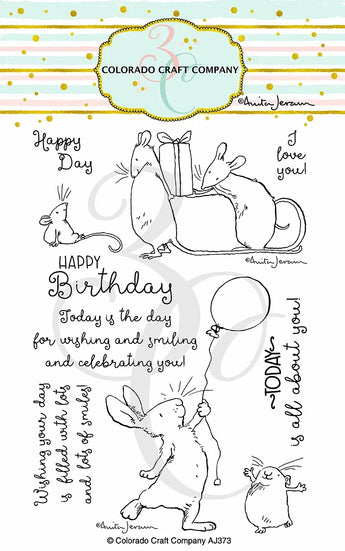 3C
COLORADO CRAFT COMPANY
©Anita Jeram
Happy
Day
I
love
you!
©Anita Jeram
HAPPY
Birthday
Today is the day
for wishing and smiling
and celebrating you!
TODAY
is all about you!
Wishing your day
is filled with lots
and lots of smiles!
©Anita Jeram
© Colorado Craft Company AJ373